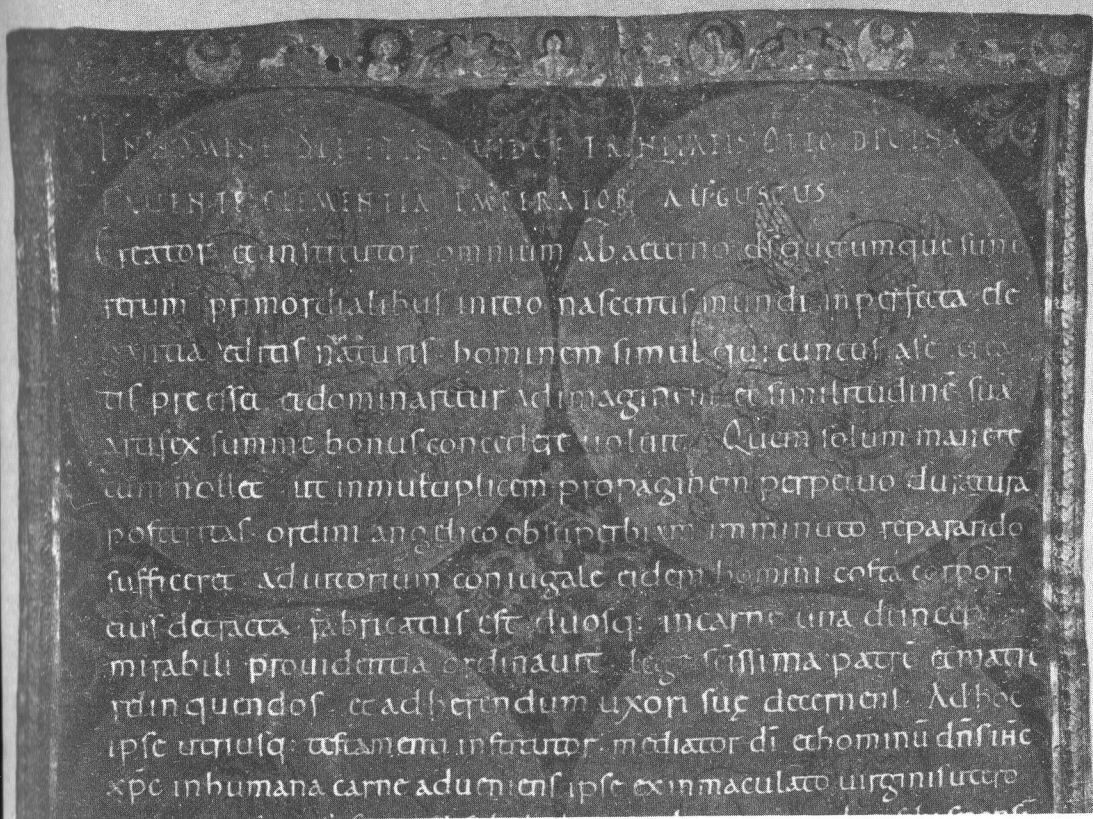 IN NOMINE SCE ET INDIVIDUE TRINITATIS OTTO DIVINA
FAUENTE CLEMENTIA IMPERATOR AUGUSTUS
Creator et institutor omnium ab aeterno d̄s quecumque sunt
rerum primordialibus initio nascentis mundi inperfecta ele
gantia editis naturis hominem simul qui cunctis a se crea
tis preesset et dominaretur ad imaginem et similitudinē suā
artifex summe bonus concedere uoluit. Quem solum manere
cum nollet ut in multiplicem propaginem perpetuo duratura
posteritas ordini angelico ob superbiam imminuto reparando
sufficeret adiutorium coniugale eidem homini costa corpori
eius detracta fabricatus est duosq; in carne una deinceps
mirabili prouidentia ordinauit lege sc̄issima patrē et matrē
relinquendos et adherendum uxori suę decernens. Ad hoc
ipse utriusq; testamenti institutor mediator dī et hominū dn̄s ihc̄
xpc̄ in humana carne adueniens ipse ex inmaculato uirginis utero